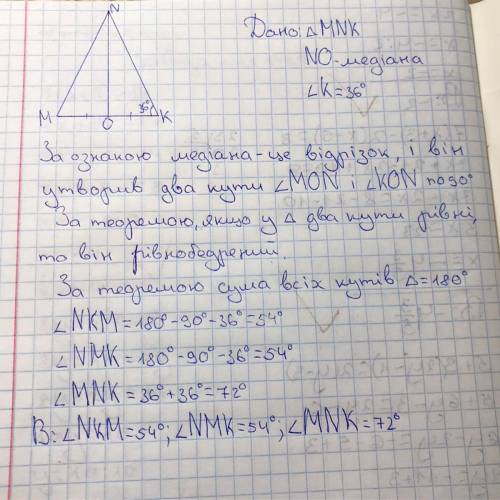 N
Дано: △MNK
NO-медіана
∠K=36°
36°
M
O
K
За ознакою медіана-це відрізок, і він
утворив два кути ∠MON і ∠KON по 90°
За теоремою, якщо у △ два кути рівні,
то він рівнобедрений.
За теоремою сума всіх кутів △=180°
∠NKM=180°-90°-36°=54°
∠NMK=180°-90°-36°=54°
∠MNK=36°+36°=72°
В: ∠NKM=54°; ∠NMK=54°; ∠MNK=72°